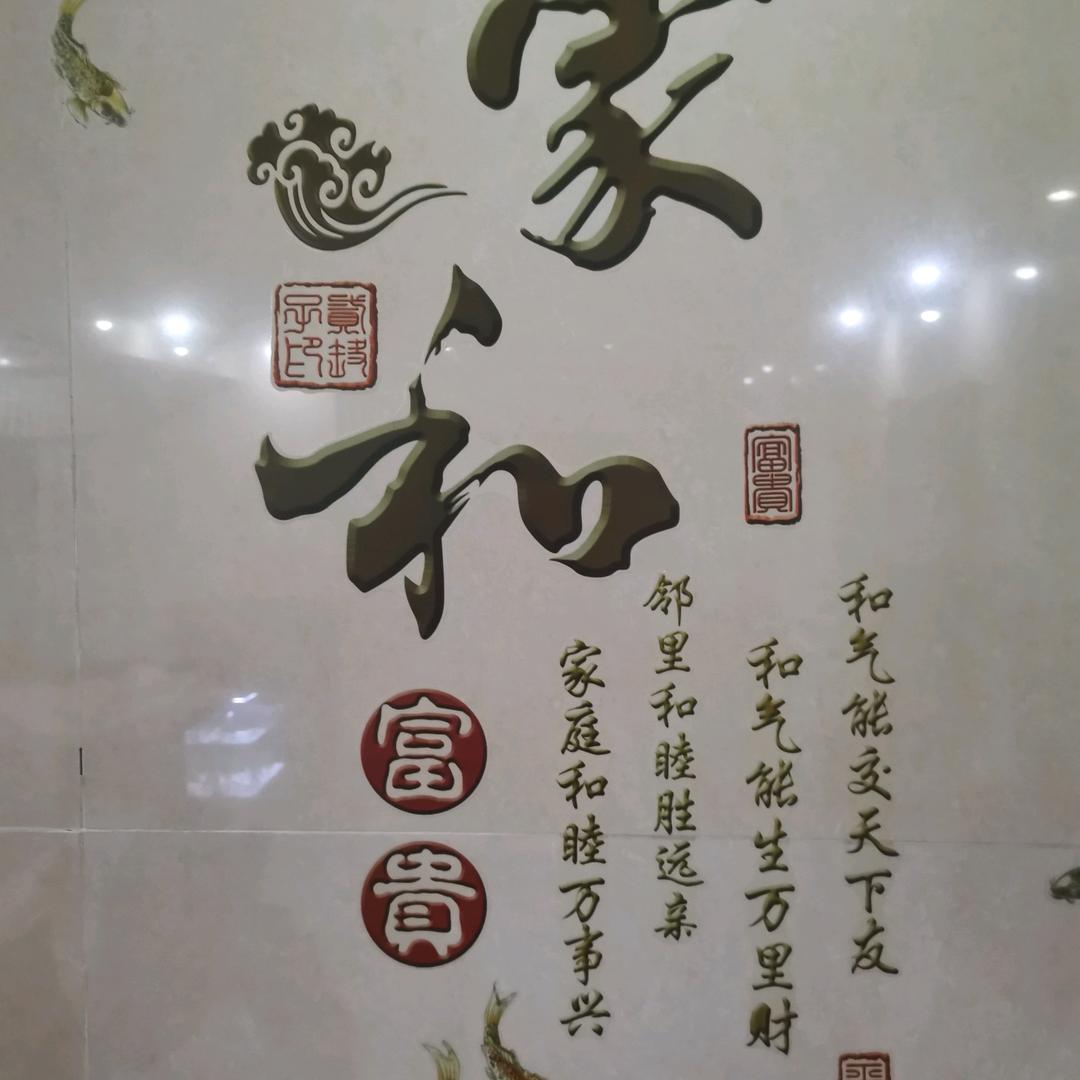 家和
富貴
和气能交天下友
和气能生万里财
邻里和睦胜远亲
家庭和睦万事兴
富貴